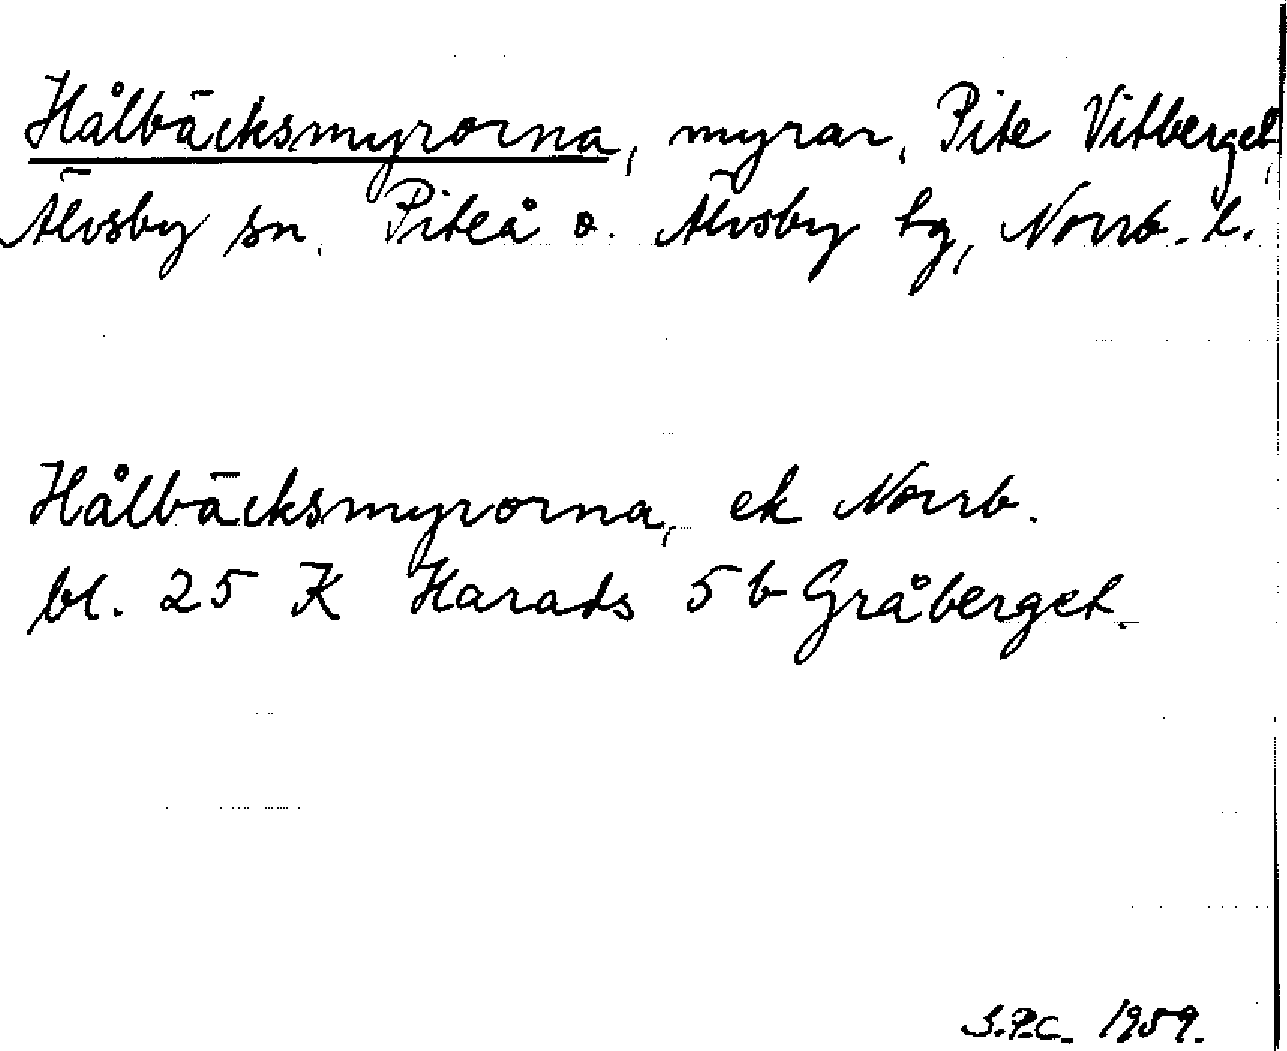 Hålbäcksmyrorna, myrar, Pite Vitberget,
Älvsby sn. Piteå o. Älvsby tg, Norrb. l.
Hålbäcksmyrorna, ek Norrb.
bl. 25 K Harads 5 b Gråberget.
S.P.C. 1959.